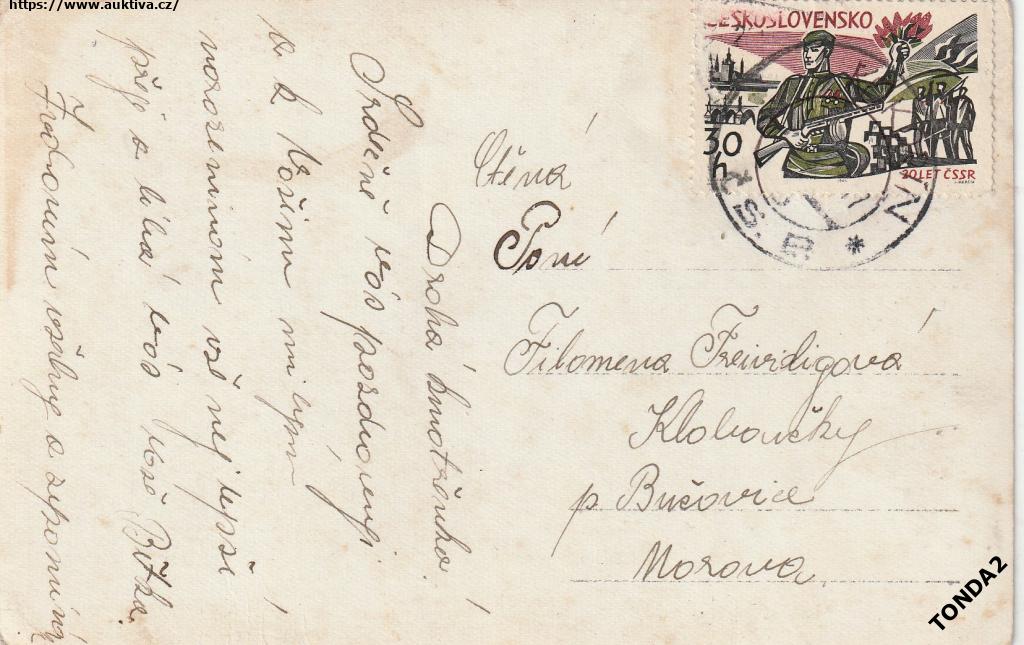 https://www.auktiva.cz/
ČESKOSLOVENSKO
30 h
20 LET ČSSR
Ctěná
Paní
Filomena Freirdigová
Kloboučky
p Bučovice
Morava
Drahá kmotřenko!
Srdečně vás pozdravuji
a k Vašim milým
narozeninám vše nejlepší
přeje a líbá vás vaše Božka.
Pozdravuji všechny a vzpomíná
TONDA2